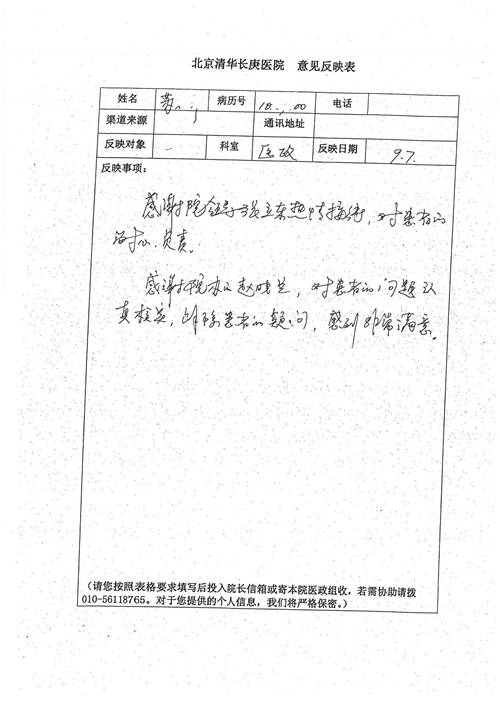 北京清华长庚医院 意见反映表
姓名 病历号 电话
渠道来源 通讯地址
反映对象 科室 医政 反映日期 9.7.
反映事项：
感谢院领导 热情接待，对患者的
负责。
感谢院办 赵 ，对患者的问题认
真核实，解除患者的疑问，感到非常满意。
(请您按照表格要求填写后投入院长信箱或寄本院医政组收，若需协助请拨
010-56118765。对于您提供的个人信息，我们将严格保密。)